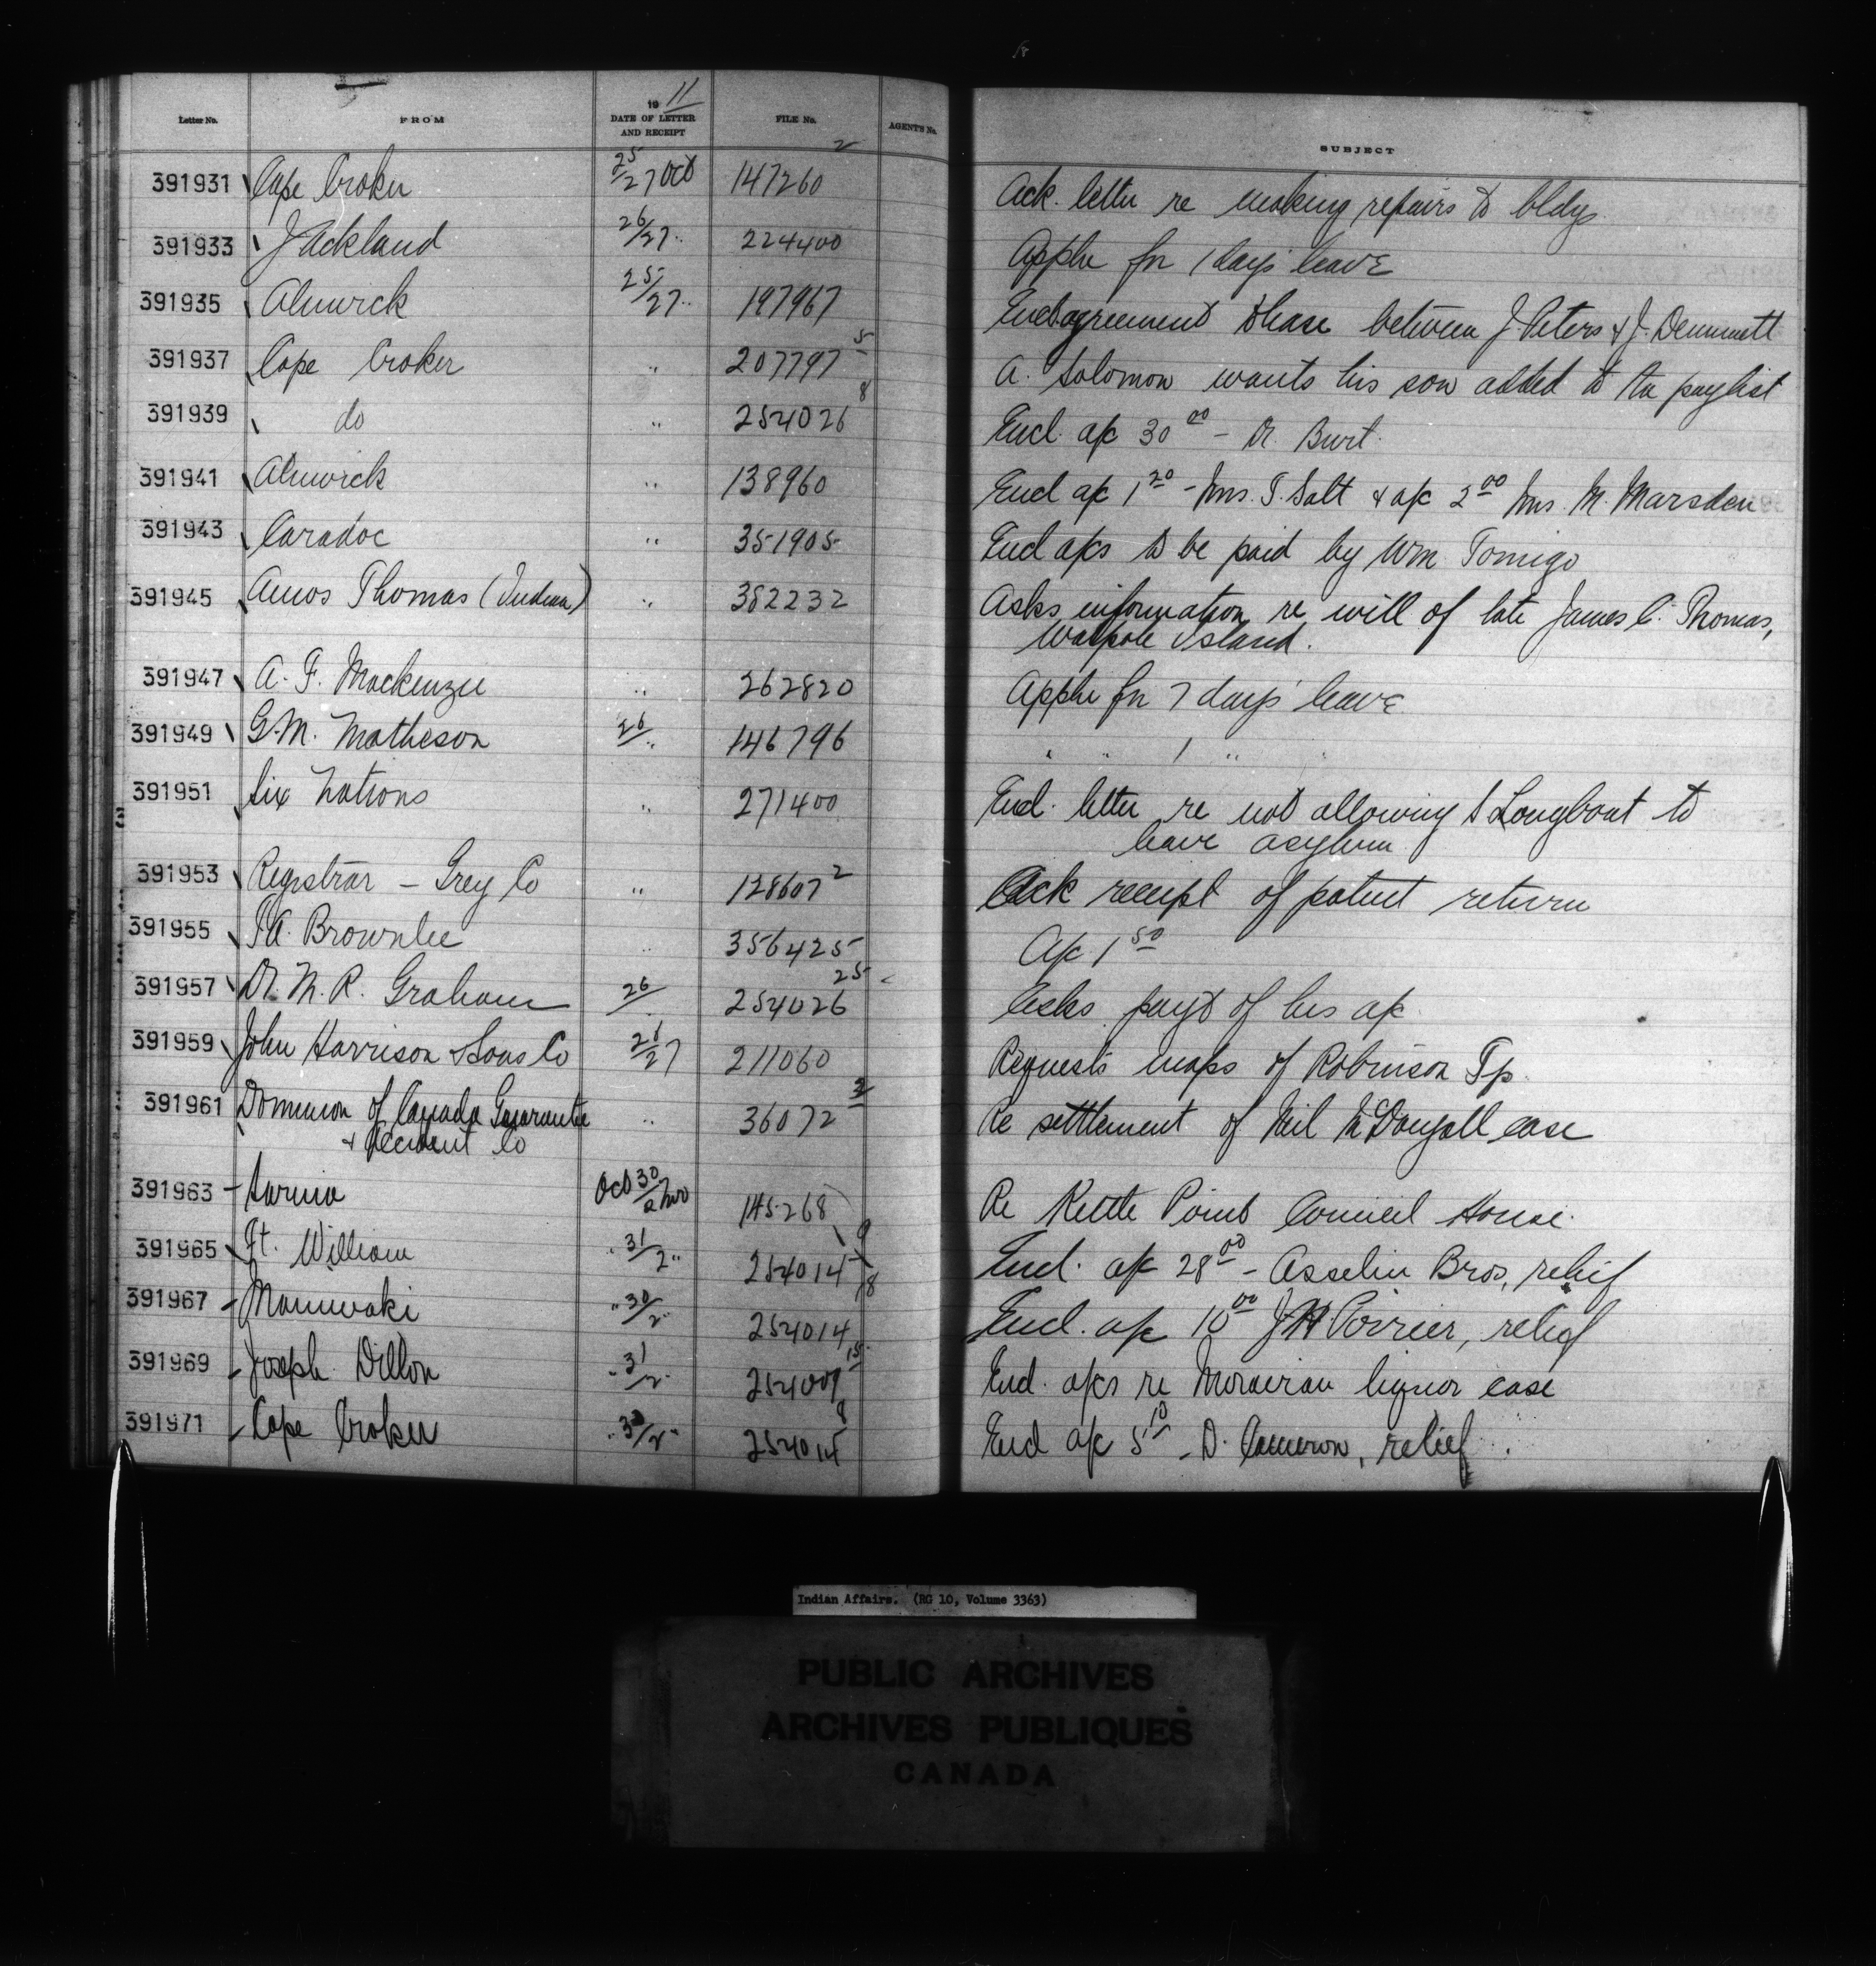 Letter No. FROM 1911 DATE OF LETTER AND RECEIPT FILE No. AGENT'S No. SUBJECT
391931 Cape Croker 25/27 Oct 147260 2 Ack. letter re making repairs to bldgs
391933 J Ackland 26/27 " 224400 Appln for 1 days' leave
391935 Alnwick 25/27 " 197967 Encl agreement to lease between J. Peters & J.
391937 Cape Croker " 207797 5 A. Solomon wants his son added to the paylist
391939 do " 254026 8 Encl. a/c 30 00 - Dr. Burt.
391941 Alnwick " 138960 Encl a/c 1 20 - Mrs. T. Salt & a/c 2 00 Mrs. M. Marsden
391943 Caradoc " 351905 Encl a/cs to be paid by Wm Tomigo
391945 Amos Thomas (Indian) " 382232 Asks information re will of late James C. Thomas,
Walpole Island.
391947 A. F. Mackenzie " 262820 Appln for 7 days' leave
391949 G. M. Matheson 26/" 146796 " " 1 " "
391951 Six Nations " 271400 Encl. letter re not allowing S Longboat to
leave asylum
391953 Registrar - Grey Co " 128607 2 Ack receipt of patent return
391955 Brownlee " 356425 A/c 1 50
391957 Dr. N. R. Graham 26/ 254026 25 Asks payt of his a/c
391959 John Harrison & Sons Co 26/27 211060 Requests maps of Robinson Tp.
391961 Dominion of Canada Guarantee " 36072 2 Re settlement of Neil McDougall case
& Accident Co
391963 Sarnia Oct 30/2 Nov 145268 Re Kettle Point Council House.
391965 Ft. William " 31/2 " 254014 9/8 Encl. a/c 28 00 - Asselin Bros, relief
391967 Maniwaki " 30/2 " 254014 Encl. a/c 10 00 J. H. Poirier, relief
391969 Joseph Dillon " 31/2 " 254009 15 Encl. a/cs re Moravian liquor case
391971 Cape Croker " 30/2 " 254014 9 Encl a/c 5 10 - D. Cameron, relief.
Indian Affairs. (RG 10, Volume 3363)
PUBLIC ARCHIVES
ARCHIVES PUBLIQUES
CANADA